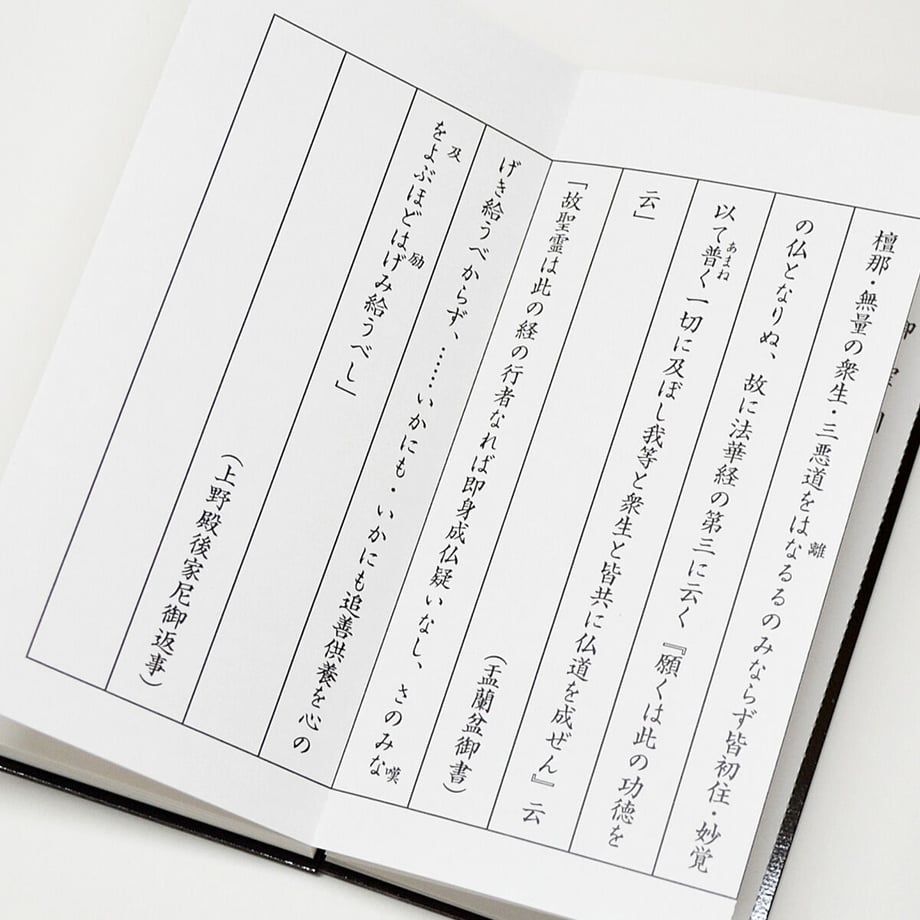 檀那・無量の衆生・三悪道をはなるるのみならず皆初住・妙覚
離
の仏となりぬ、故に法華経の第三に云く『願くは此の功徳を
以て普く一切に及ぼし我等と衆生と皆共に仏道を成ぜん』云
あまね
云」
(盂蘭盆御書)
「故聖霊は此の経の行者なれば即身成仏疑いなし、さのみな
嘆
げき給うべからず、……いかにも・いかにも追善供養を心の
をよぶほどはげみ給うべし」
及
励
(上野殿後家尼御返事)